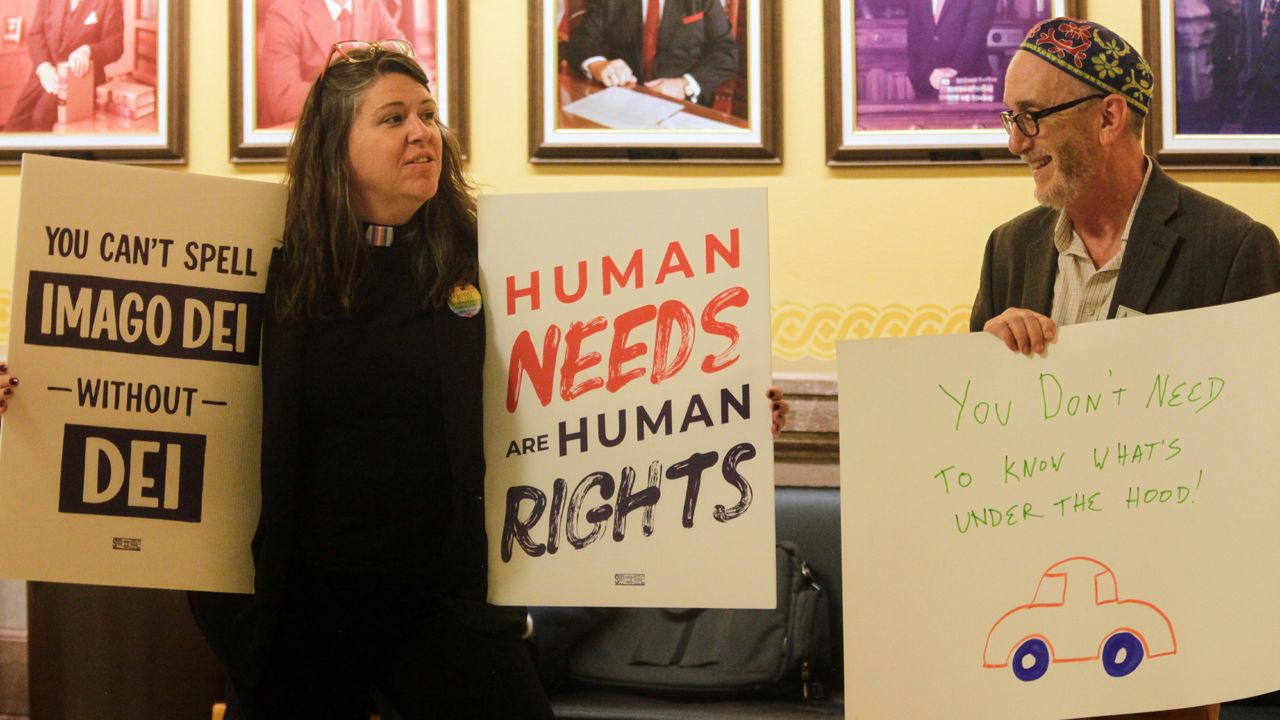 YOU CAN'T SPELL
IMAGO DEI
WITHOUT
DEI
HUMAN
NEEDS
ARE HUMAN
RIGHTS
YOU DON'T NEED
TO KNOW WHAT'S
UNDER THE HOOD!